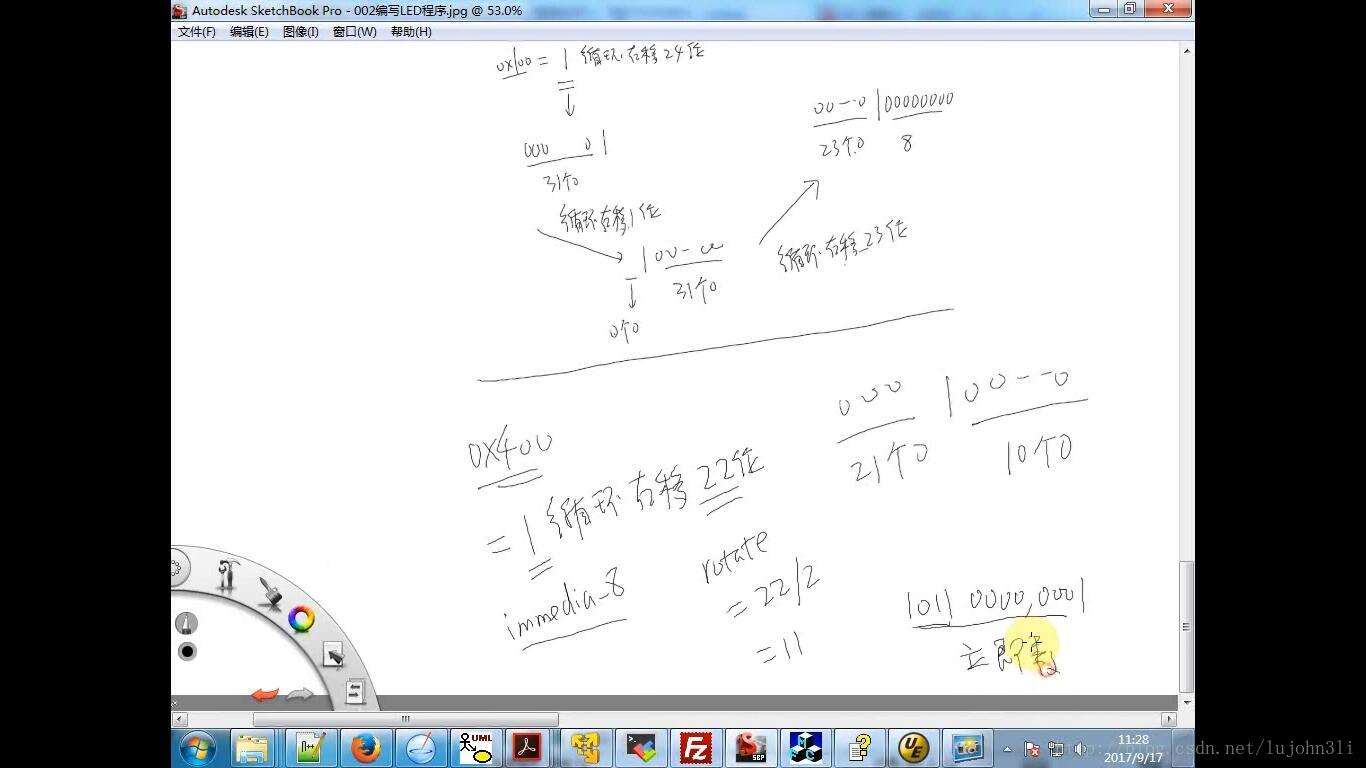 Autodesk SketchBook Pro - 002编写LED程序.jpg @ 53.0%
文件(F) 编辑(E) 图像(I) 窗口(W) 帮助(H)
0x100 = 1 循环右移24位
000 0 1
31个0
循环右移1位
100-00
31个0
0个0
循环右移23位
00--0 1 00000000
23个0 8
0x400
= 1 循环右移22位
immedia-8
rotate
= 22/2
= 11
000 1 00--0
21个0 10个0
1011 0000,0001
立即数
UML
SBP
11:28
2017/9/17
http://blog.csdn.net/lujohn3li